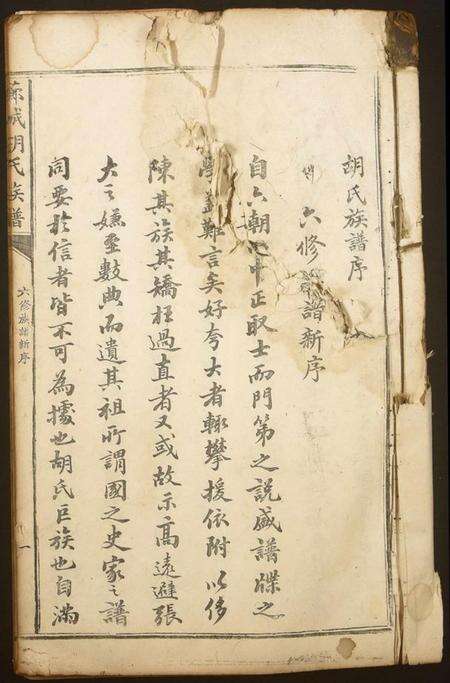 胡氏族譜序
六修譜新序
自六朝中正取士而門第之説盛譜牒之
學難言矣好夸大者輒攀援依附以侈
陳其族其矯枉過直者又或故示高遠避張
大之嫌至數典而遺其祖所謂國之史家之譜
同要於信者皆不可為據也胡氏巨族也自滿
城胡氏族譜
六修族譜新序
一